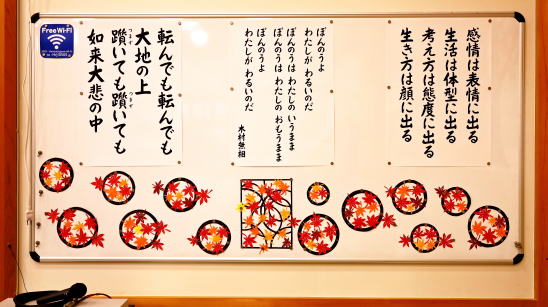 感情は表情に出る
生活は体型に出る
考え方は態度に出る
生き方は顔に出る
ぼんのうよ
わたしが わるいのだ
ぼんのうは わたしの いうまま
ぼんのうは わたしの おもうまま
ぼんのうよ
わたしが わるいのだ
木村無相
転んでも転んでも
大地の上
躓いても躓いても
つまず
つまず
如来大悲の中
Free Wi-Fi